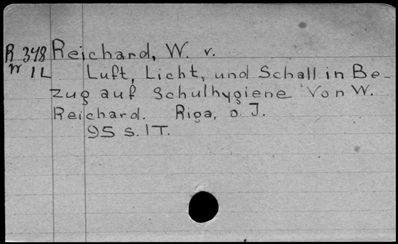 R 348 Reichard, W. v.
W 1L Luft, Licht, und Schall in Be-
zug auf Schulhygiene Von W.
Reichard. Riga, o. J.
95 S. 1T.